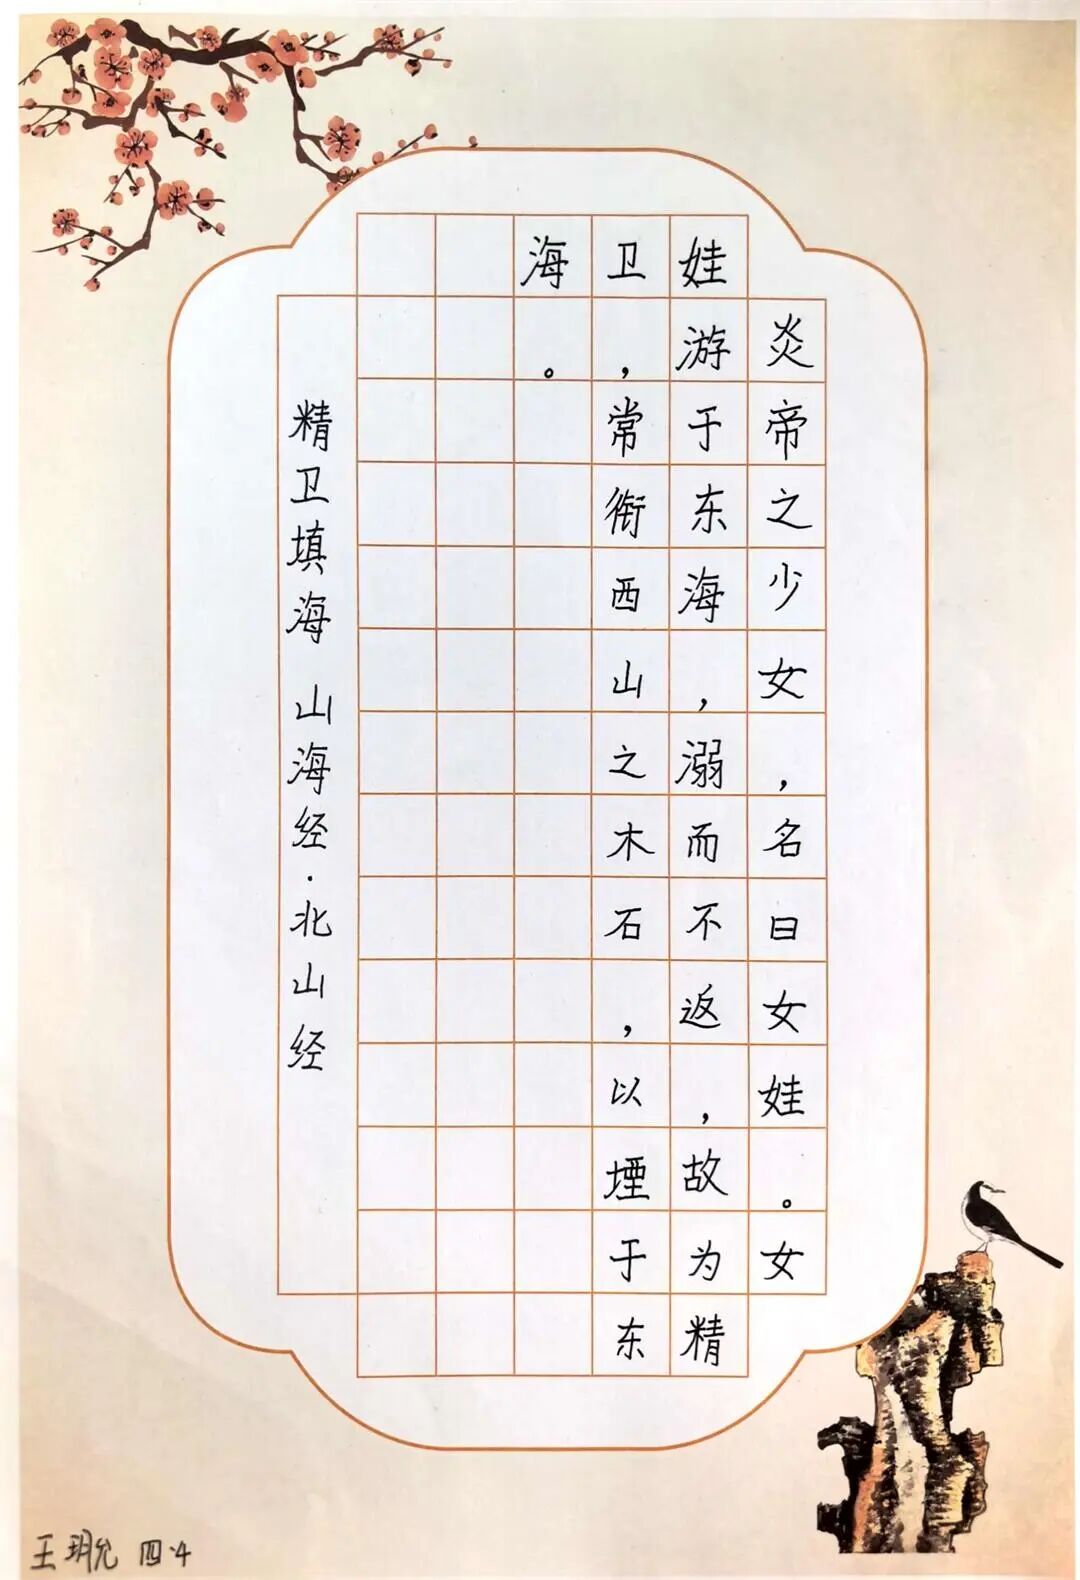 炎帝之少女，名曰女娃。女
娃游于东海，溺而不返，故为精
卫，常衔西山之木石，以堙于东
海。
精卫填海 山海经·北山经
王玥允 四·4